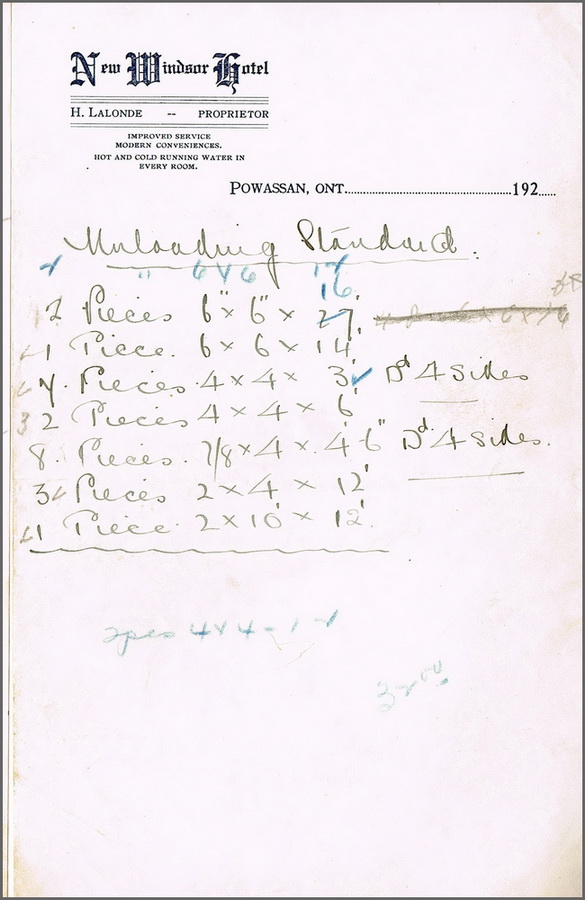 New Windsor Hotel
H. LALONDE -- PROPRIETOR
IMPROVED SERVICE
MODERN CONVENIENCES.
HOT AND COLD RUNNING WATER IN
EVERY ROOM.
POWASSAN, ONT. 192
Unloading Standard.
" 6 x 6
16
2 Pieces 6" x 6" x 27'
1 Piece. 6 x 6 x 14'
4. Pieces 4 x 4 x 3' Dd 4 Sides
2 Pieces 4 x 4 x 6'
8. Pieces. 7/8 x 4 x 4'-6" Dd 4 Sides.
3 Pieces 2 x 4 x 12'
1 Piece. 2 x 10 x 12'.
2 pcs 4 x 4 - 1